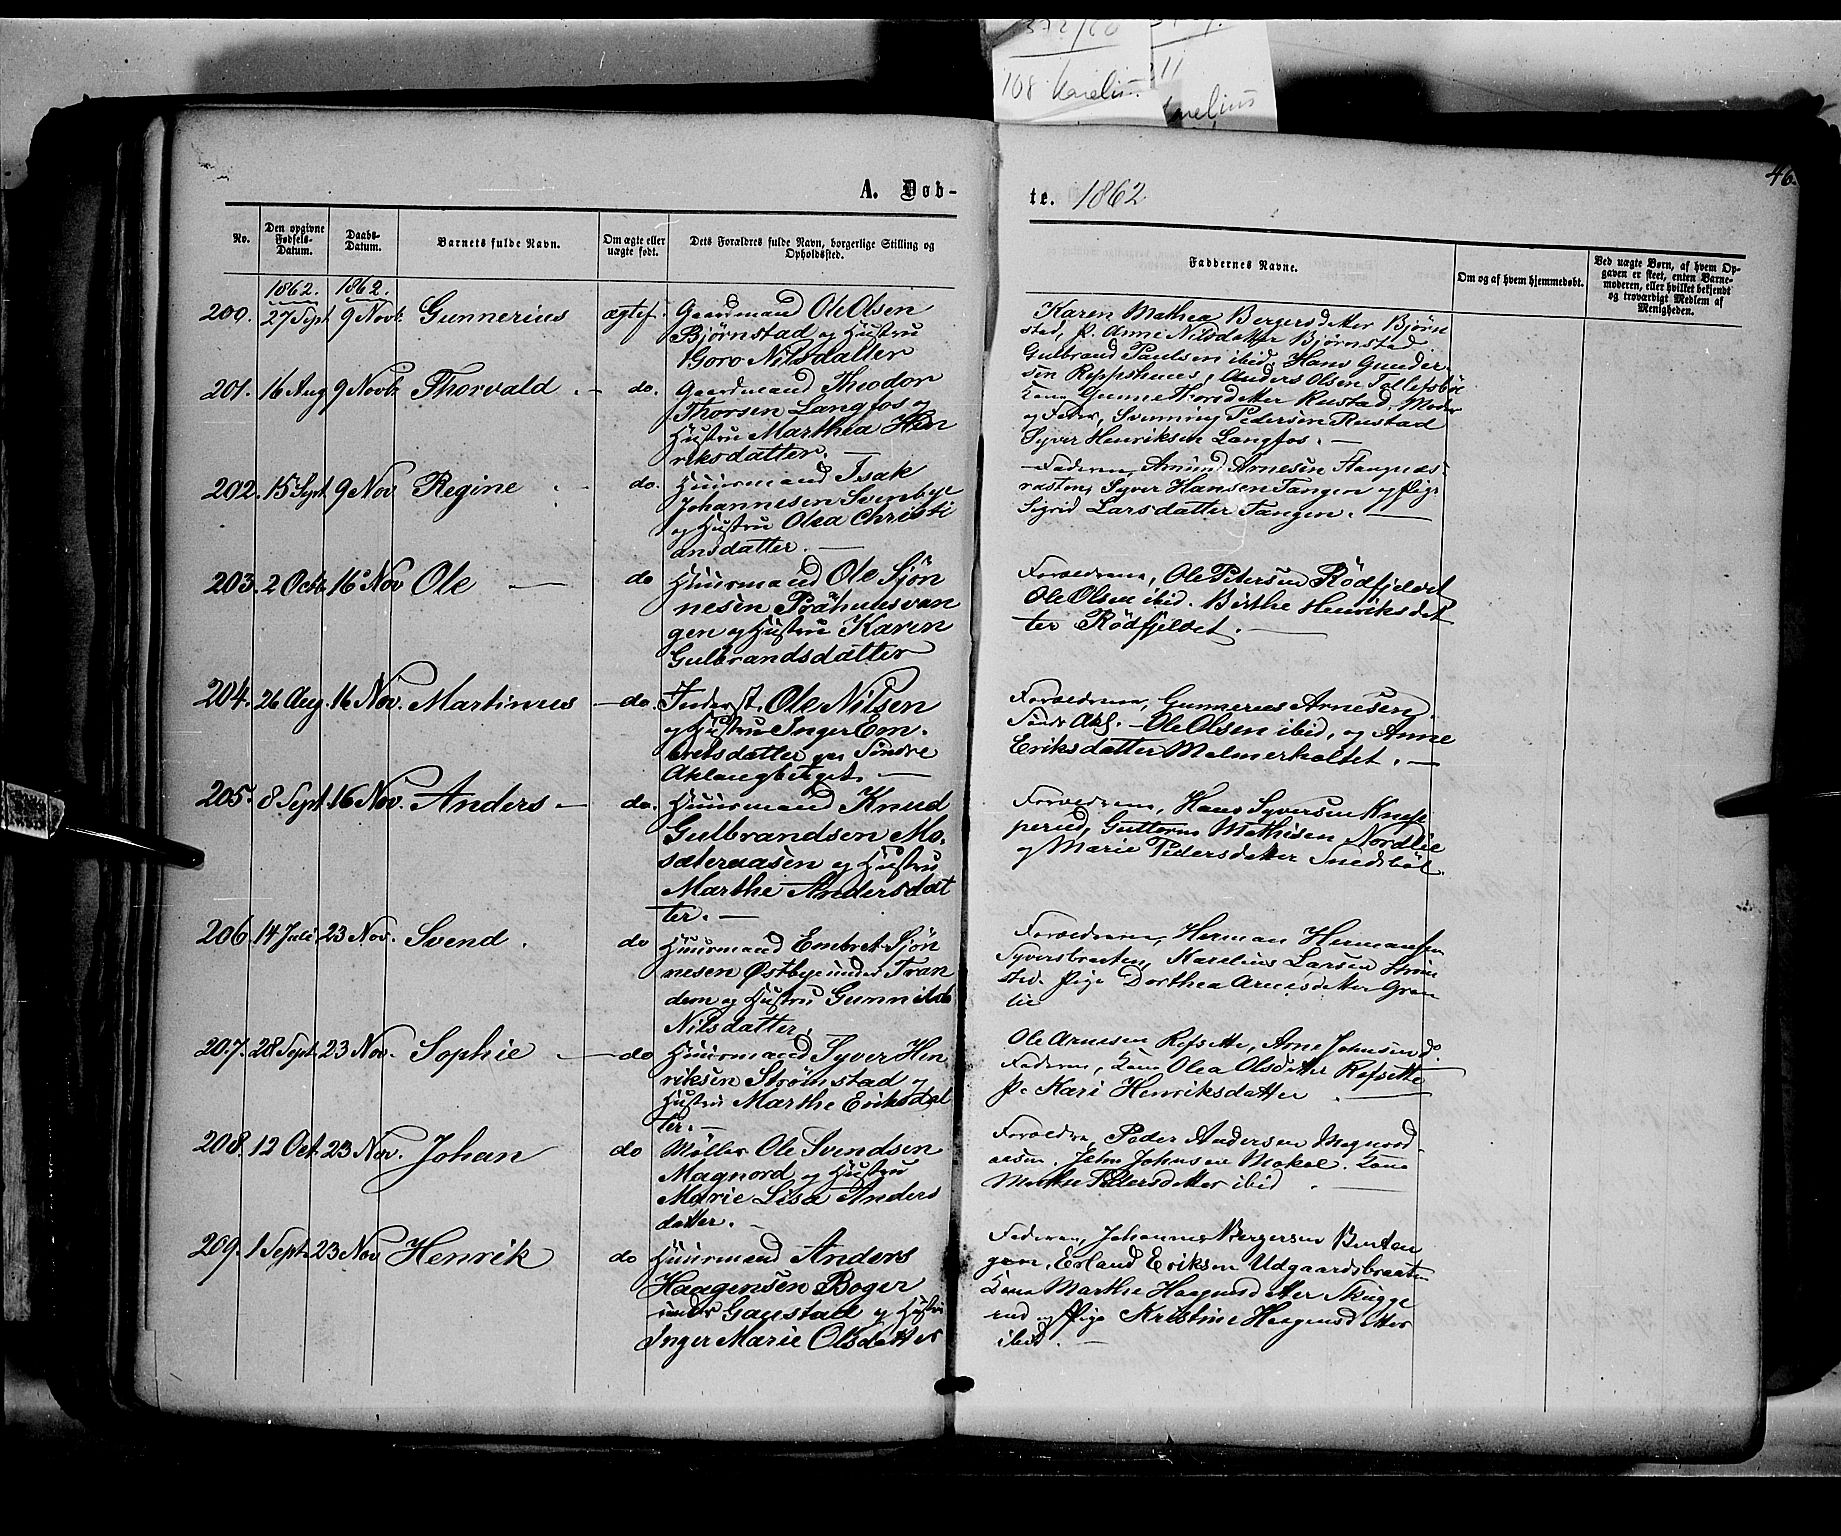 372/60
108 Karelius
11
Karelius
46.
A. Døb-
te. 1862
No.
Den opgivne Fødsels-Datum.
Daabs-Datum.
Barnets fulde Navn.
Om ægte eller uægte født.
Dets Forældres fulde Navn, borgerlige Stilling og Opholdssted.
Faddernes Navne.
Om og af hvem hjemmedøbt.
Ved uægte Børn, af hvem Op-
gaven er skeet, enten Barne-
moderen, eller hvilket bekjendt
og troværdigt Medlem af
Menigheden.
1862. 1862.
200. 27 Sept 9 Novb. Gunnerius ægtef. Gaardmand Ole Olsen
Bjørnstad og Hustru
Goro Nilsdatter
Karen Mathea Bergersdatter Bjørn
stad, P. Anne Nilsdatter Bjørnstad
Gulbrand Paulsen ibid, Hans Gunder
sen Reppshuus, Anders Olsen Tollefsbøl
201. 16 Aug 9 Novb Thorvald do. Gaardmand Theodor
Thorsen Langfos og
Hustru Marthea Hen
riksdatter.
Kone Gunne Thorsdatter Rustad, Moder
og Fader, Svenning Pedersen Rustad
Syver Henriksen Langfos.
202. 15 Sept 9 Nov Regine do. Huusmand Isak
Johannesen Svenbye
og Hustru Olea Christi
ansdatter.
Faderen, Amund Arnesen Haugnæs-
Syver Hansen Tangen og Pige
Sigrid Larsdatter Tangen.
203. 2 Octb. 16 Nov Ole do Huusmand Ole Sjøn
nesen Pråhuusvan
gen og Hustru Karen
Gulbrandsdatter
Forældrene, Ole Petersen Rödfjeldet
Ole Olsen ibid. Birthe Henriksdat
ter Rödfjeldet.
204. 26 Aug. 16 Nov. Martinus do. Inderst. Ole Nilsen
og Hustru Inger Em-
bretsdatter Søndre
Aklangberget.
Forældrene, Gunnerius Arnesen
Søndr Akl. Ole Olsen ibid, og Anne
Eriksdatter Malmerholtet.
205. 8 Sept. 16 Nov. Anders do. Huusmand Knud
Gulbrandsen Mo-
sæteraasen og Hustru
Marthe Andersdat
ter.
Forældrene, Hans Syversen Knap
perud, Guttorm Mathisen Nordlie
og Marie Pedersdatter Snedsböl.
206. 14 Juli 23 Nov. Svend. do Huusmand Embret Sjøn
nesen Østbye under Tran
dem og Hustru Gunnilde
Nilsdatter.
Forældrene, Herman Hermansen
Syversbraaten, Karelius Larsen Strøm
stad. Pige Dorthea Arnesdatter Gran
lie
207. 28 Sept. 23 Nov. Sophie do Huusmand Syver Hen
riksen Strømstad og
Hustru Marthe Eriksdat
ter.
Ole Arnesen Refsette, Arne Johnsen d.
Faderen, Kone Olea Olsdatter Refsette
P. Kari Henriksdatter.
208. 12 Oct. 23 Nov. Johan do Møller Ole Svendsen
Magnord og Hustru
Marie Lisa Anders
datter.
Forældre, Peder Andersen Magnord
aasen. John Johnsen Makol. Kone
Marthe Pedersdatter ibid.
209. 1 Sept. 23 Nov Henrik do Huusmand Anders
Haagensen Boger
under Gaustad og Hustru
Inger Marie Olsdatter
Faderen, Johannes Bergersen Buten
gen, Erland Eriksen Udgaardsbraaten
Kone Marthe Haagensdatter Skugge
rud og Pige Kristine Haagensdatter
ibid.